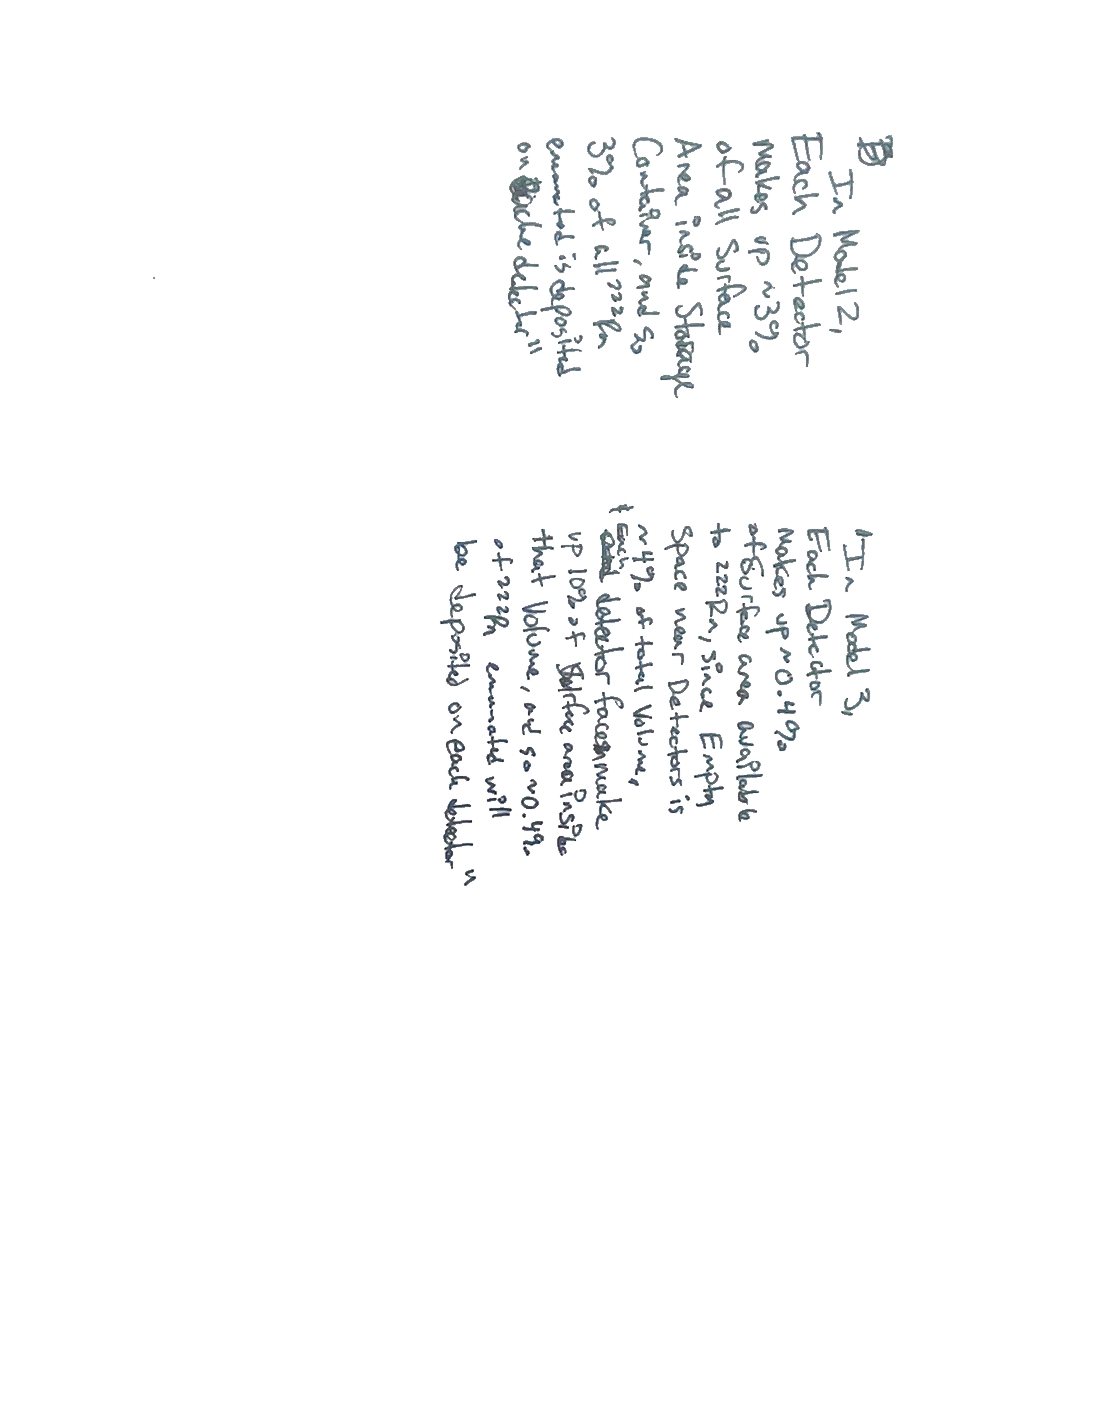 In Model 2,
Each Detector
Makes up ~3%
of all Surface
Area inside Storage
Container, and so
3% of all 222Rn
emanated is deposited
on the detector"
"In Model 3,
Each Detector
Makes up ~0.4%
of Surface area available
to 222Rn, since Empty
Space near Detectors is
~4% of total Volume,
+ Each detector faces make
up 10% of Surface area inside
that Volume, and so ~0.4%
of 222Rn emanated will
be deposited on each detector"